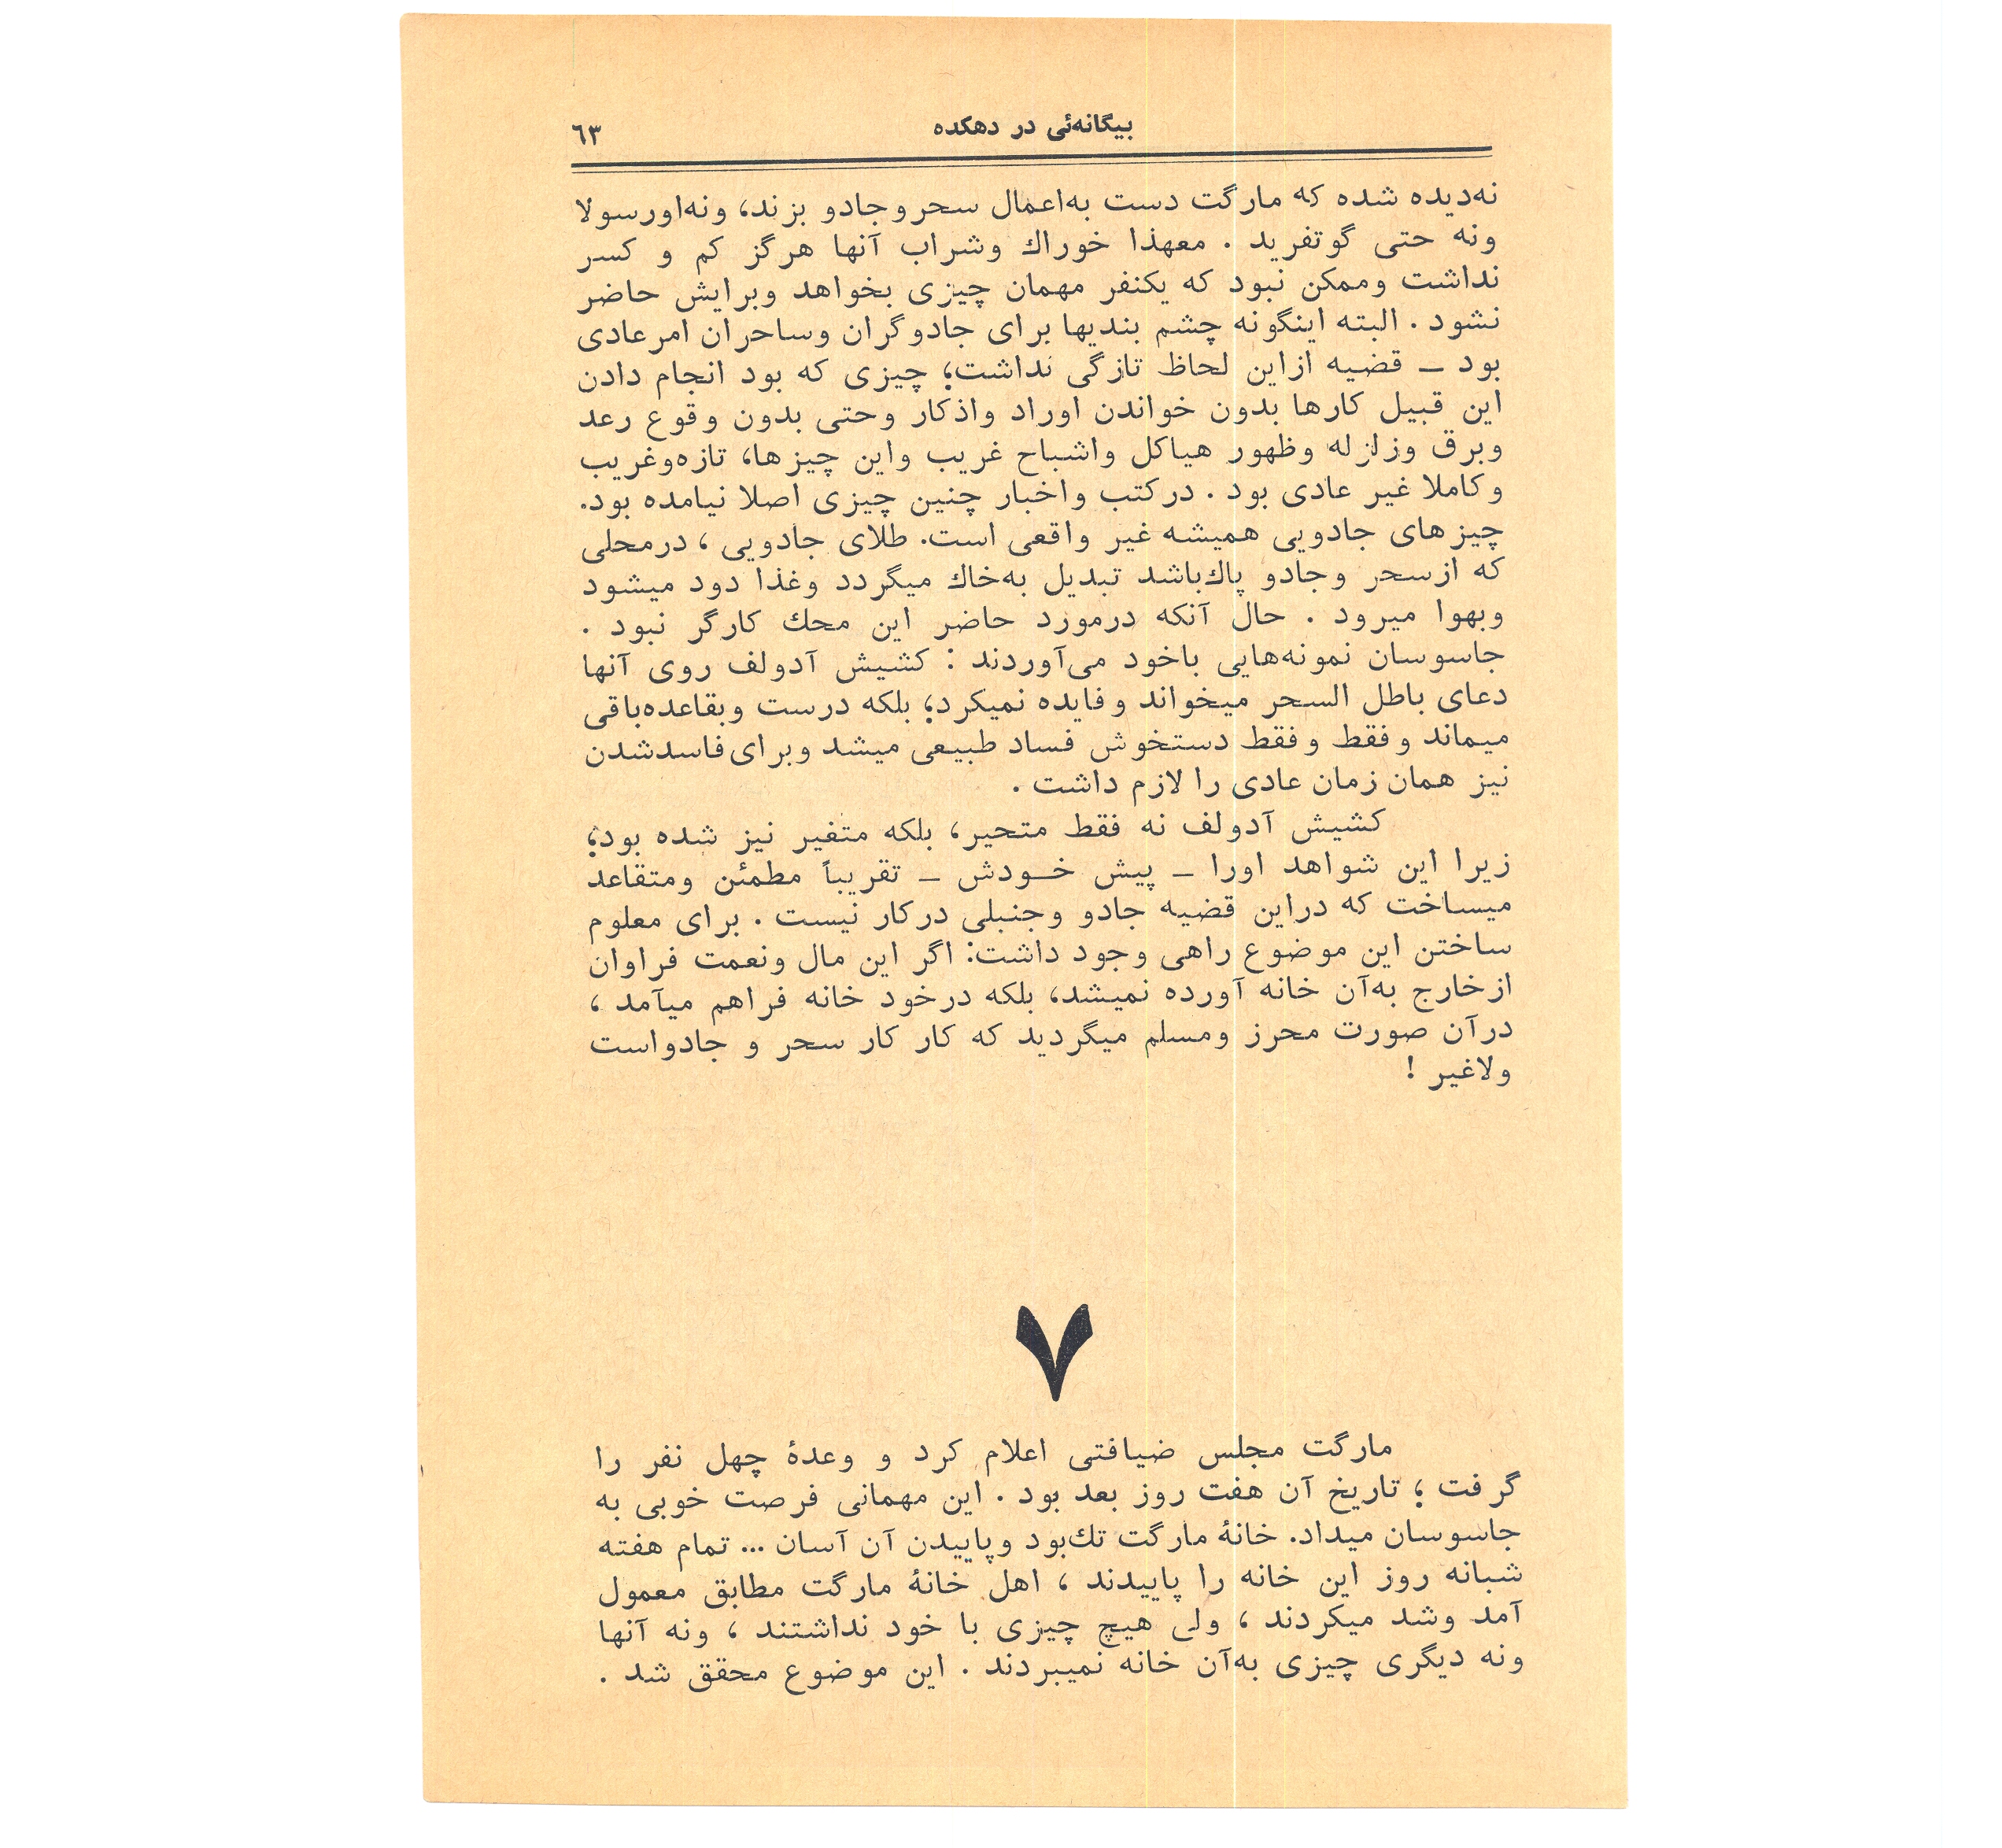 بیگانه‌ئی در دهکده
٦٣
نه‌دیده شده که مارگت دست به‌اعمال سحروجادو بزند، ونه‌اورسولا
ونه حتی گوتفرید . معهذا خوراك وشراب آنها هرگز کم و کسر
نداشت وممکن نبود که یکنفر مهمان چیزی بخواهد وبرایش حاضر
نشود . البته اینگونه چشم بندیها برای جادوگران وساحران امرعادی
بود ــ قضیه ازاین لحاظ تازگی نداشت؛ چیزی که بود انجام دادن
این قبیل کارها بدون خواندن اوراد واذکار وحتی بدون وقوع رعد
وبرق وزلزله وظهور هیاکل واشباح غریب واین چیزها، تازه‌وغریب
وکاملا غیر عادی بود . درکتب واخبار چنین چیزی اصلا نیامده بود.
چیزهای جادویی همیشه غیر واقعی است. طلای جادویی ، درمحلی
که ازسحر وجادو پاك‌باشد تبدیل به‌خاك میگردد وغذا دود میشود
وبهوا میرود . حال آنکه درمورد حاضر این محك کارگر نبود .
جاسوسان نمونه‌هایی باخود می‌آوردند : کشیش آدولف روی آنها
دعای باطل السحر میخواند وفایده نمیکرد؛ بلکه درست وبقاعده‌باقی
میماند وفقط وفقط دستخوش فساد طبیعی میشد وبرای‌فاسدشدن
نیز همان زمان عادی را لازم داشت .
کشیش آدولف نه فقط متحیر، بلکه متغیر نیز شده بود؛
زیرا این شواهد اورا ــ پیش خــودش ــ تقریباً مطمئن ومتقاعد
میساخت که دراین قضیه جادو وجنبلی درکار نیست . برای معلوم
ساختن این موضوع راهی وجود داشت: اگر این مال ونعمت فراوان
ازخارج به‌آن خانه آورده نمیشد، بلکه درخود خانه فراهم میآمد ،
درآن صورت محرز ومسلم میگردید که کار کار سحر و جادواست
ولاغیر !
۷
مارگت مجلس ضیافتی اعلام کرد و وعدهٔ چهل نفر را
گرفت ؛ تاریخ آن هفت روز بعد بود . این مهمانی فرصت خوبی به
جاسوسان میداد. خانهٔ مارگت تك‌بود وپاییدن آن آسان ... تمام هفته
شبانه روز این خانه را پاییدند ، اهل خانهٔ مارگت مطابق معمول
آمد وشد میکردند ، ولی هیچ چیزی با خود نداشتند ، ونه آنها
ونه دیگری چیزی به‌آن خانه نمیبردند . این موضوع محقق شد .